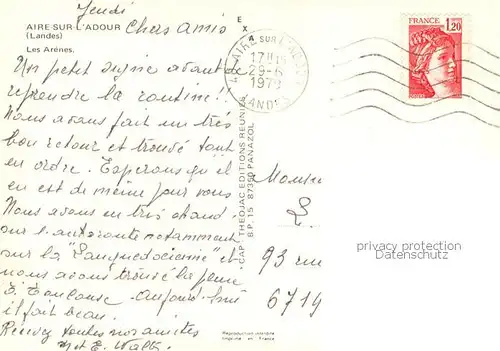 AIRE-SUR-L'ADOUR
(Landes)
Les Arènes.
Jeudi
Chers amis
Un petit signe avant de
reprendre la routine!!
Nous avons fait un très
bon retour et trouvé tout
en ordre. Espérons qu'il
en est de même pour vous
Nous avons eu très chaud
sur l'autoroute notamment
sur la "Languedocienne" et
nous avons trouvé la pluie
à Toulouse. Aujourd'hui
il fait beau.
Recevez toutes nos amitiés
et E.
EX
"CAP" THEOJAC EDITIONS REUNIES
B.P. 15 87350 PANAZOL
AIRE SUR L'ADOUR
17H15
29-6
1978
LANDES
FRANCE
1,20
Monsieur
L.
93 rue
6719
privacy protection
Reproduction interdite
Imprimé en France